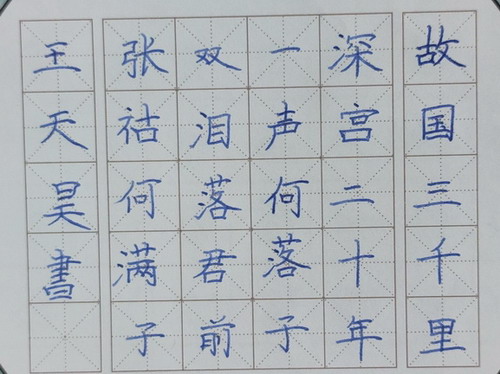 故国三千里
深宫二十年
一声何落子
双泪落君前
张祜何满子
王天昊書